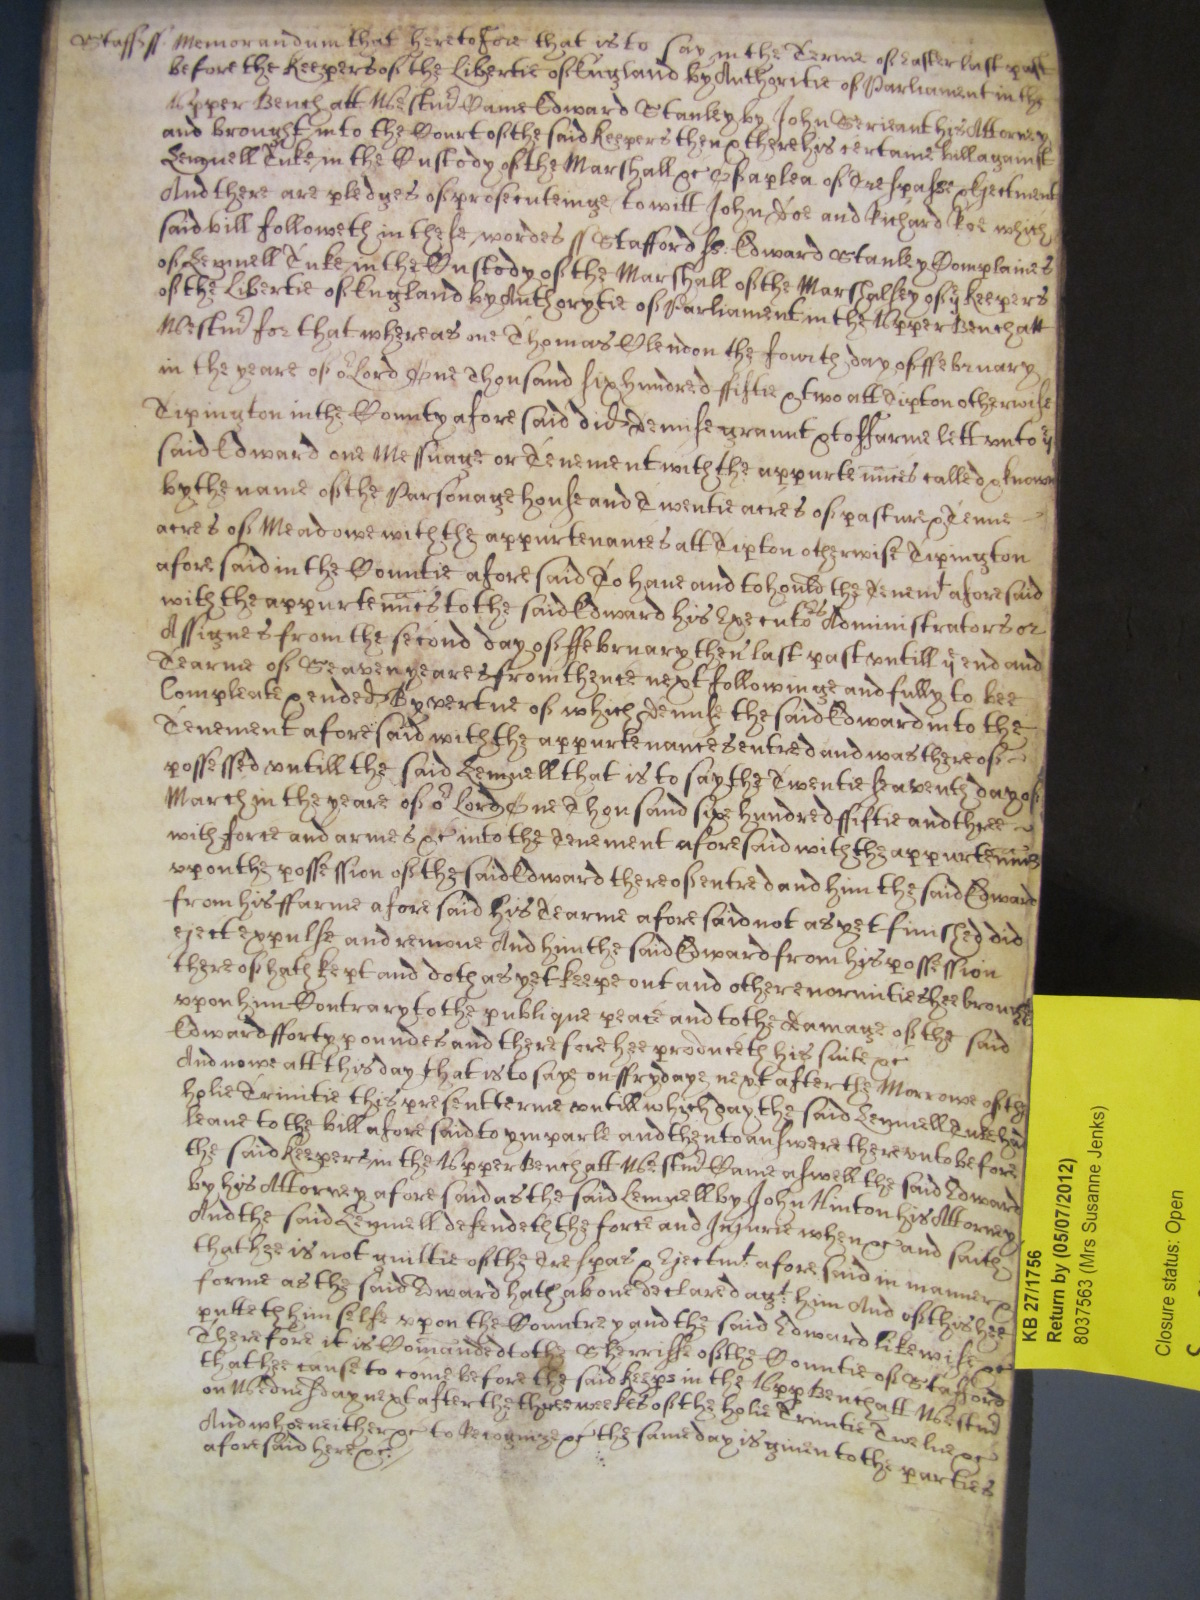 Staff ss. Memorandum that heretofore that is to say in the Terme of Easter last past
before the Keepers of the Libertie of England by Authoritie of Parliament in the
Upper Bench att Westmr Came Edward Stanley by John Serieant his Attorney
and brought into the Court of the said Keepers then & there his certaine bill against
Lemuell Tuke in the Custody of the Marshall &c Of a plea of Trespasse & Ejectment
And there are pledges of prosecuteinge to witt John Doe and Richard Roe which
said bill followeth in these wordes ss Stafford ss. Edward Stanley Complaines
of Lemuell Tuke in the Custody of the Marshall of the Marshalsey of ye Keepers
of the Libertie of England by Authorytie of Parliament in the Upper Bench att
Westmr for that whereas one Thomas Clendon the fourth day of ffebruary
in the yeare of or Lord One Thousand six hundred fiftie & two att Tipton otherwise
Tipington in the County aforesaid did demise graunt & to ffarme lett unto ye
said Edward one Messuage or Tenement with the appurtennces called & knowne
by the name of the Parsonage house and Twentie acres of pasture & Tenne
acres of Meadowe with the appurtenances att Tipton otherwise Tipington
aforesaid in the Countie aforesaid To have and to hould the Tenemt aforesaid
with the appurtennces to the said Edward his Executors Administrators or
Assignes from the second day of ffebruary then last past untill ye end and
Tearme of Seaven yeares from thence next followinge and fully to bee
Compleate & ended By vertue of which demise the said Edward into the
Tenement aforesaid with the appurtenances entred and was thereof
possessed untill the said Lemuell that is to say the Twentie seaventh day of
March in the yeare of or Lord One Thousand six hundred ffiftie and three
with force and armes &c into the Tenement aforesaid with the appurtennces
upon the possession of the said Edward thereof entred and him the said Edward
from his ffarme aforesaid his Tearme aforesaid not as yet finished did
eject expulse and remove And him the said Edward from his possession
thereof hath kept and doth as yet keepe out and other enormities hee brought
upon him Contrary to the publique peace and to the damage of the said
Edward fforty poundes and therefore hee produceth his suite &c
And nowe att this day that is to saye on ffrydaye next after the Morrowe of the
holie Trinitie this present terme untill which day the said Lemuell Tuke had
leave to the bill aforesaid to ymparle and then to answere thereunto before
the said Keepers in the Upper Bench att Westmr Came aswell the said Edward
by his Attorney aforesaid as the said Lemuell by John Hinton his Attorney
And the said Lemuell defendeth the force and Injurie when &c and saith
that hee is not guiltie of the Trespas & Ejectmt aforesaid in manner &
forme as the said Edward hath above declared agt him And of this hee
putteth himselfe upon the Countrey and the said Edward likewise &c
Therefore it is Comanded to the Sherriffe of the Countie of Stafford
that hee cause to come before the said Keeps in the Upp Bench att Westmr
on Wednesday next after the three weekes of the holie Trinitie Twelve &c
And whoe neither &c to Recognize &c the same day is given to the parties
aforesaid here &c
KB 27/1756
Return by (05/07/2012)
8037563 (Mrs Susanne Jenks)
Closure status: Open